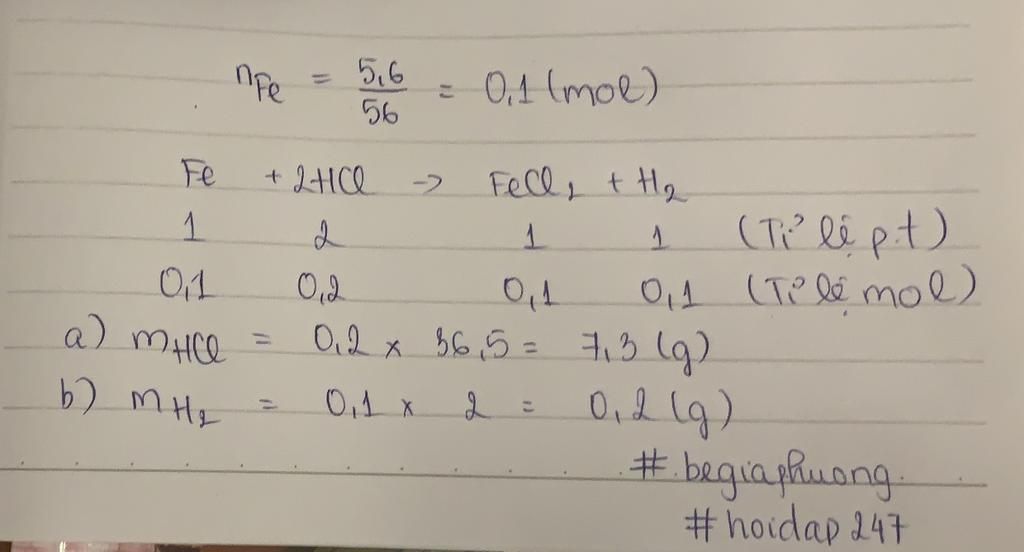 nFe = 5,6/56 = 0,1 (mol)
Fe + 2HCl -> FeCl2 + H2
1 2 1 1 (Tỉ lệ p.t)
0,1 0,2 0,1 0,1 (Tỉ lệ mol)
a) mHCl = 0,2 x 36,5 = 7,3 (g)
b) mH2 = 0,1 x 2 = 0,2 (g)
#.begiaphuong.
#hoidap247